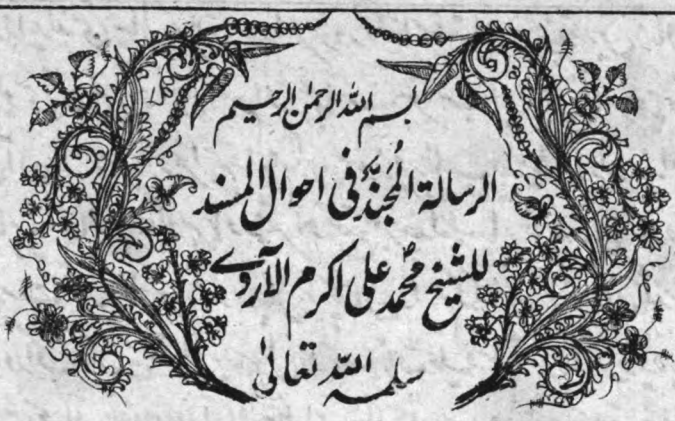 بسم الله الرحمٰن الرحیم
الرسالة المُجنّدة فی احوال المسند
للشیخ محمد علی اکرم الآروے
سلمہ اللہ تعالیٰ